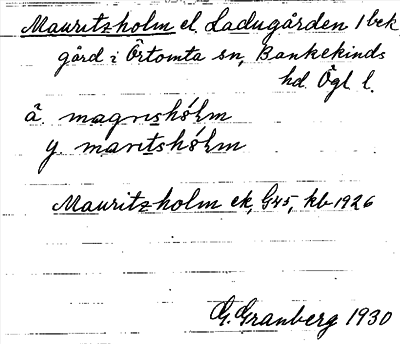 Mauritzholm el. Ladugården 1 bek
gård i Örtomta sn, Bankekinds
hd. Ögl l.
ä.
y.
Mauritzholm ek, G45, kb 1926
G. Granberg 1930